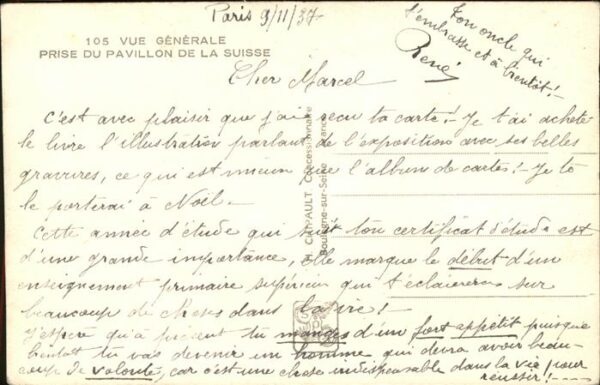 Paris 9/11/37
Ton oncle qui
t'embrasse et à bientôt! -
René
105 VUE GÉNÉRALE
PRISE DU PAVILLON DE LA SUISSE
Cher Marcel
C'est avec plaisir que j'ai reçu ta carte! - Je t'ai acheté
le livre l'illustration parlant de l'exposition avec ses belles
gravures, ce qui est mieux que l'album de cartes! - Je te
le porterai à Noël. -
Cette année d'étude qui suit ton certificat d'étude est
d'une grande importance, elle marque le début d'un
enseignement primaire supérieur qui t'éclairera sur
beaucoup de choses dans la vie!
J'espère qu'à présent tu manges d'un fort appétit puisque
bientôt tu vas devenir un homme, qui devra avoir beau-
coup de volonté, car c'est une chose indispensable dans la vie pour
réussir! -
H. CHIPAULT Concessionnaire
Boulogne-sur-Seine